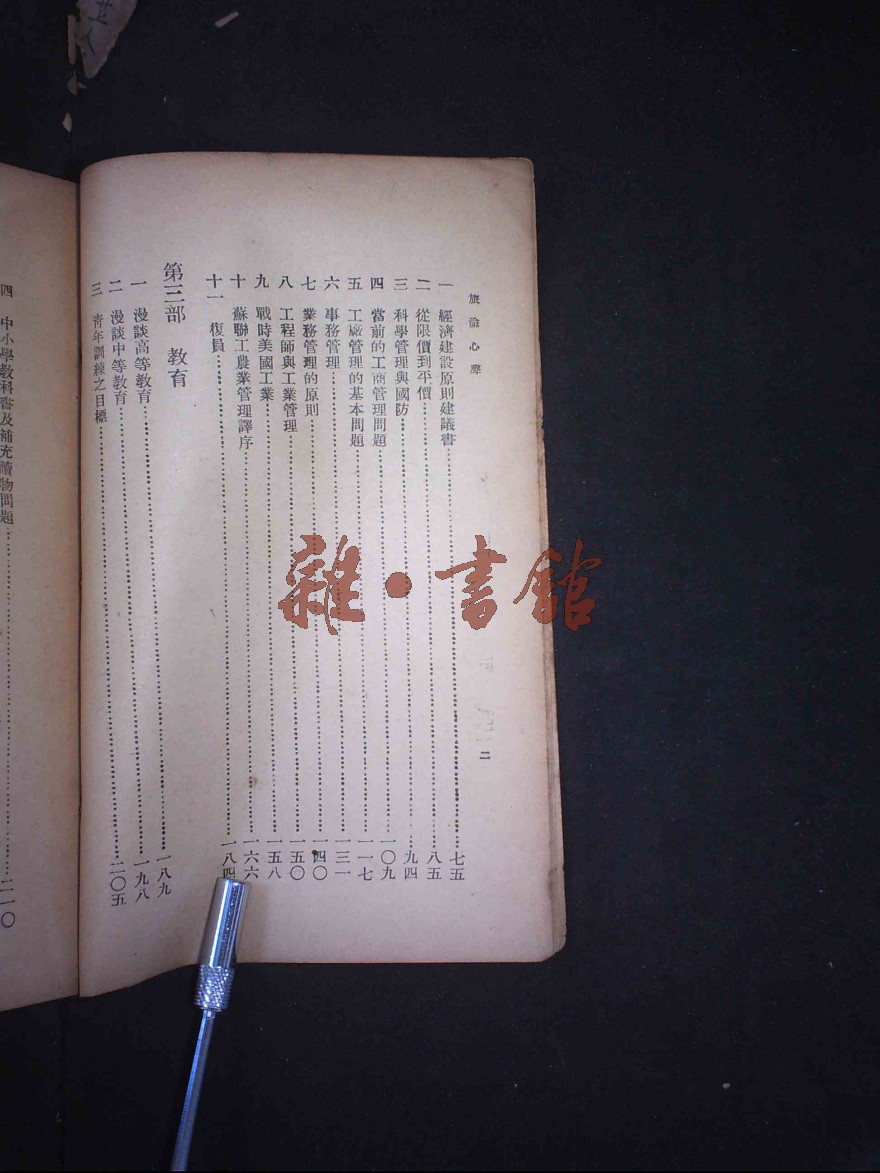 旅渝心聲
二
一 經濟建設原則建議書……七五
二 從限價到平價……八五
三 科學管理與國防……九四
四 當前的工商管理問題……一〇九
五 工廠管理的基本問題……一一七
六 事務管理……一三一
七 業務管理的原則……一四〇
八 工程師與工業管理……一五〇
九 戰時美國工業……一五八
十 蘇聯工農業管理譯序……一六六
十一 復員……一八四
第三部 教育
一 漫談高等教育……一八九
二 漫談中等教育……一九八
三 青年訓練之目標……二〇五
四 中小學教科書及補充讀物問題……二一〇
雜·書館